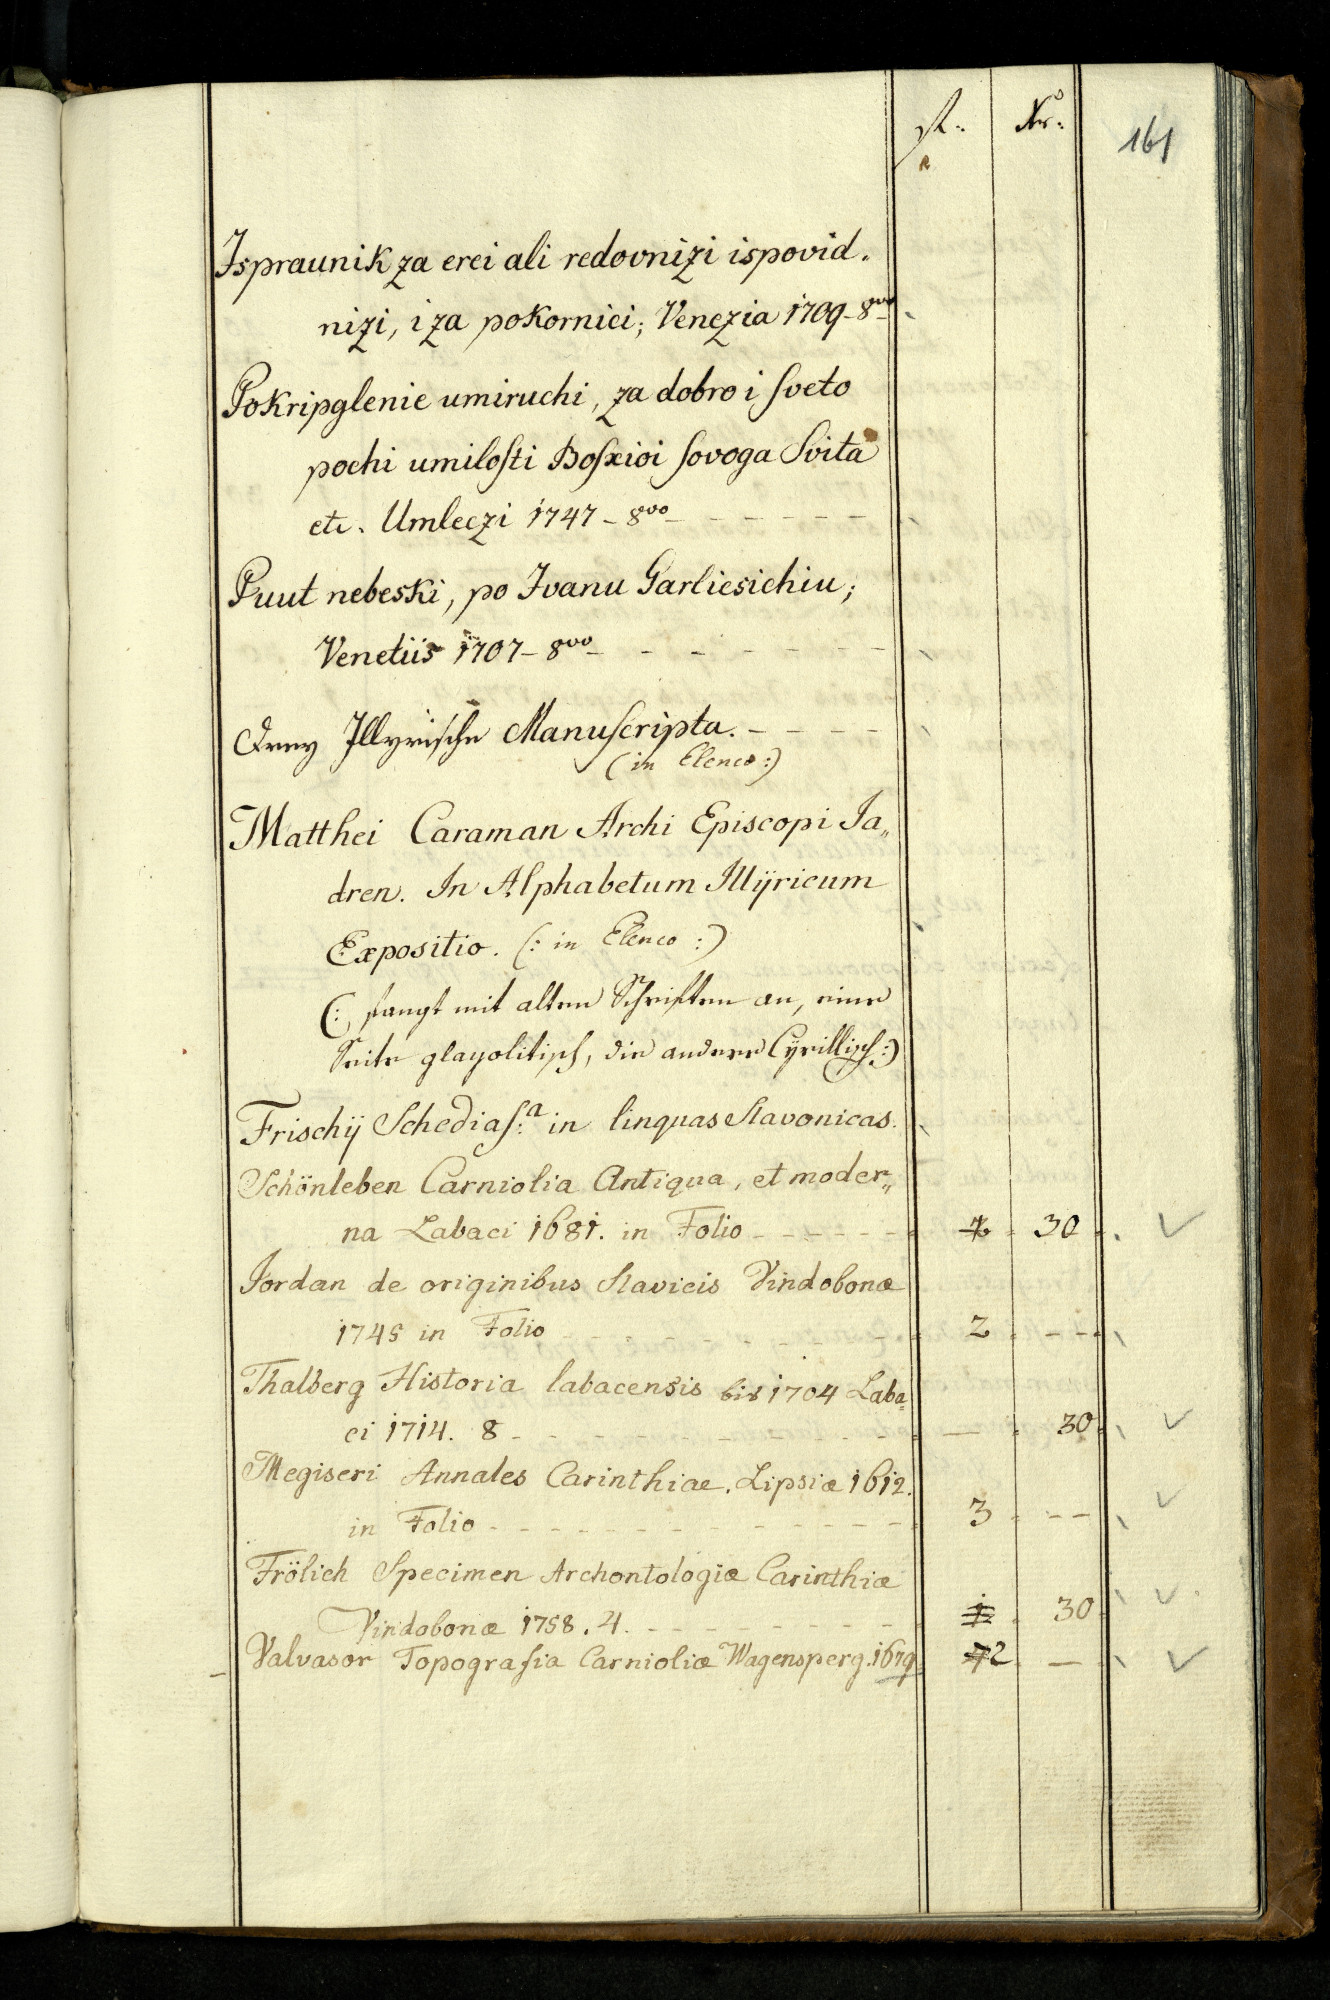 fl: Xr:
161
Ispraunik za erei ali redovnizi ispovid.
nizi, i za pokornici; Venezia 1709 - 8vo
Pokripglenie umiruchi, za dobro i sveto
pochi umilosti Bosxioi sovoga Svita
etc. Umleczi 1747 - 8vo
Puut nebeski, po Ivanu Garliesichiu;
Venetiis 1707 - 8vo
Drey Jllyrische Manuscripta.
(in Elenco:)
Matthei Caraman Archi Episcopi Ja„
dren. In Alphabetum Illÿricum
Expositio. (: in Elenco :)
(: fangt mit alten Schriften an, eine
Seite glagolitisch, die andere Cÿrillisch:)
Frischÿ Schedias:a in linguas Slavonicas.
Schönleben Carniolia Antiqua, et moder„
na Labaci 1681. in Folio 30
Jordan de originibus Slavicis Vindobonæ
1745 in Folio 2 —
Thalberg Historia labacensis bis 1704 Laba=
ci 1714. 8 — 30
Megiseri Annales Carinthiae. Lipsiæ 1612.
in Folio 3 —
Frölich Specimen Archontologiæ Carinthiæ
Vindobonæ 1758. 4. 1 30
Valvasor Topografia Carnioliæ Wagensperg. 1679 2 —